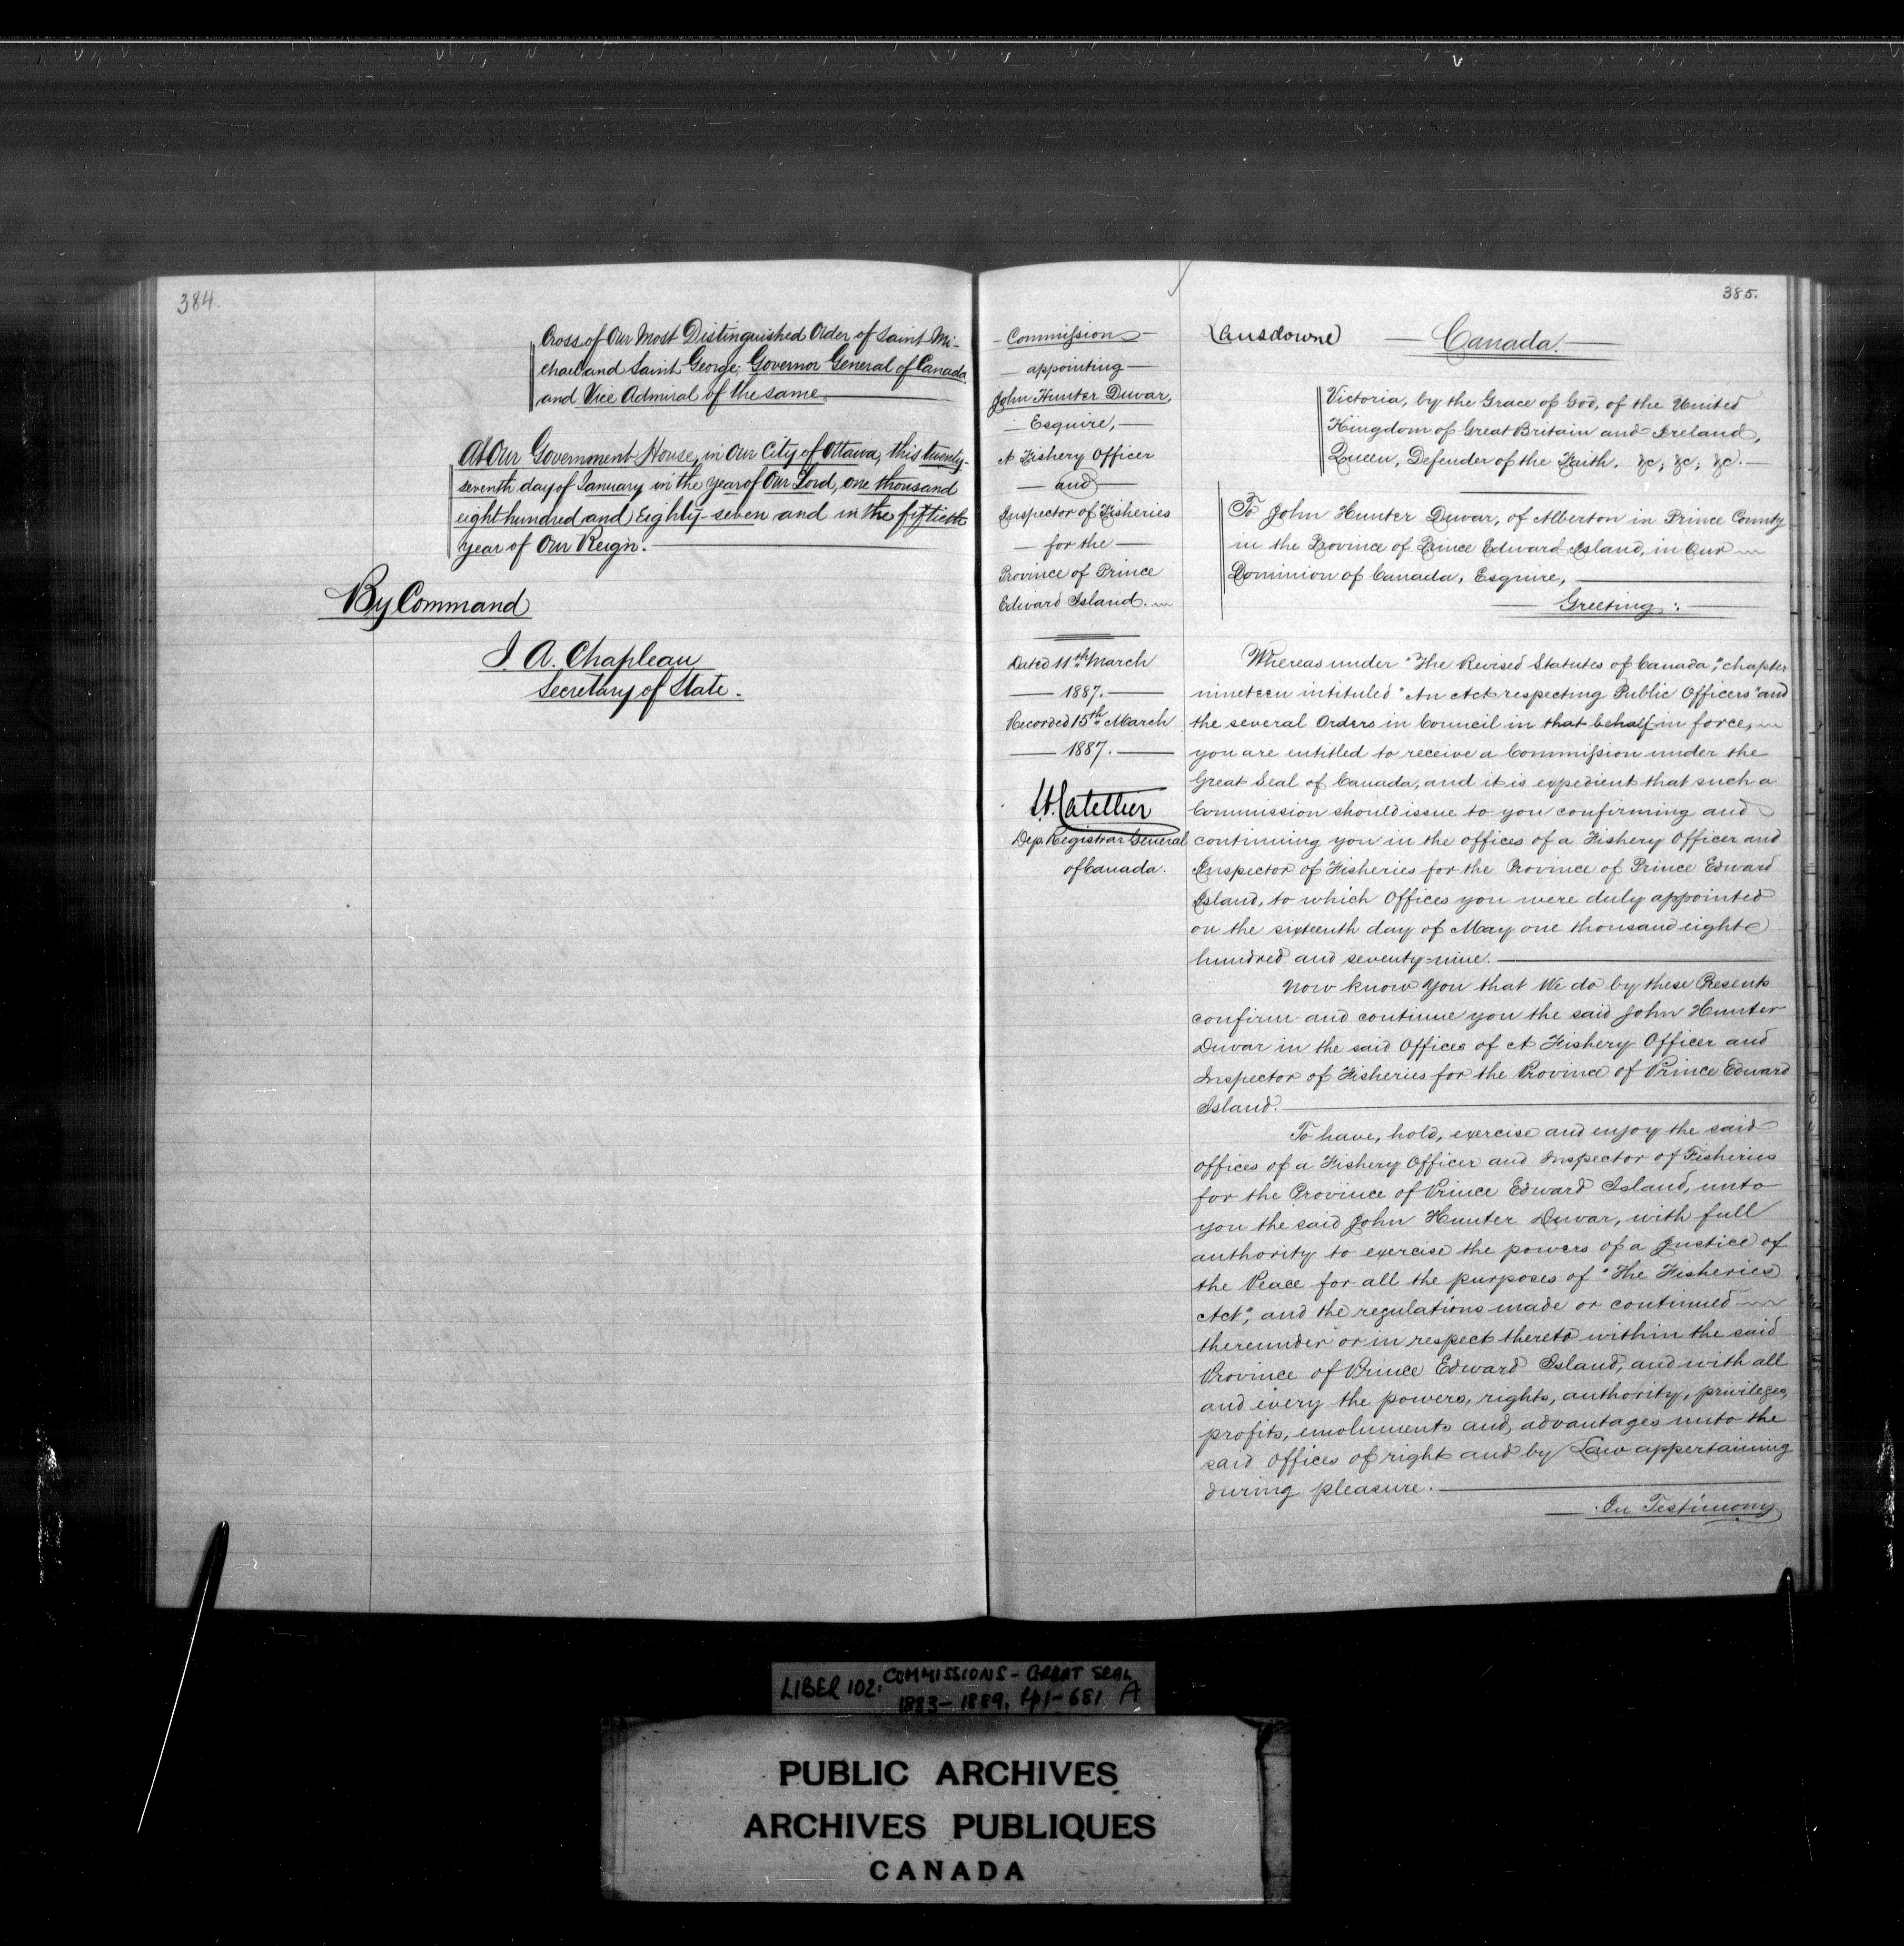 384.
Cross of Our Most Distinguished Order of Saint Mi-
chael and Saint George; Governor General of Canada
and Vice Admiral of the same.
At Our Government House, in Our City of Ottawa, this twenty-
seventh day of January in the year of Our Lord, one thousand
eight hundred and Eighty-seven and in the fiftieth
year of Our Reign.
By Command
J. A. Chapleau
Secretary of State.
385.
Commission
appointing
John Hunter Duvar,
Esquire,
A Fishery Officer
and
Inspector of Fisheries
for the
Province of Prince
Edward Island.
Dated 11th March
1887.
Recorded 15th March
1887.
Catellier
Dep. Registrar General
of Canada.
Lansdowne
Canada.
Victoria, by the Grace of God, of the United
Kingdom of Great Britain and Ireland,
Queen, Defender of the Faith, &c, &c, &c.
To John Hunter Duvar, of Alberton in Prince County
in the Province of Prince Edward Island, in Our
Dominion of Canada, Esquire,
Greeting:
Whereas under "The Revised Statutes of Canada," chapter
nineteen intituled "An Act respecting Public Officers" and
the several Orders in Council in that behalf in force,
you are entitled to receive a Commission under the
Great Seal of Canada, and it is expedient that such a
Commission should issue to you confirming and
continuing you in the offices of a Fishery Officer and
Inspector of Fisheries for the Province of Prince Edward
Island, to which Offices you were duly appointed
on the sixteenth day of May one thousand eight
hundred and seventy-nine.
Now know You that We do by these Presents
confirm and continue you the said John Hunter
Duvar in the said Offices of A Fishery Officer and
Inspector of Fisheries for the Province of Prince Edward
Island.
To have, hold, exercise and enjoy the said
offices of a Fishery Officer and Inspector of Fisheries
for the Province of Prince Edward Island, unto
you the said John Hunter Duvar, with full
authority to exercise the powers of a Justice of
the Peace for all the purposes of "The Fisheries
Act", and the regulations made or continued
thereunder or in respect thereto within the said
Province of Prince Edward Island, and with all
and every the powers, rights, authority, privileges,
profits, emoluments and advantages unto the
said Offices of right and by Law appertaining
during pleasure.
In Testimony
LIBER 102: COMMISSIONS - GREAT SEAL
1883-1889, 441-681 A
PUBLIC ARCHIVES
ARCHIVES PUBLIQUES
CANADA